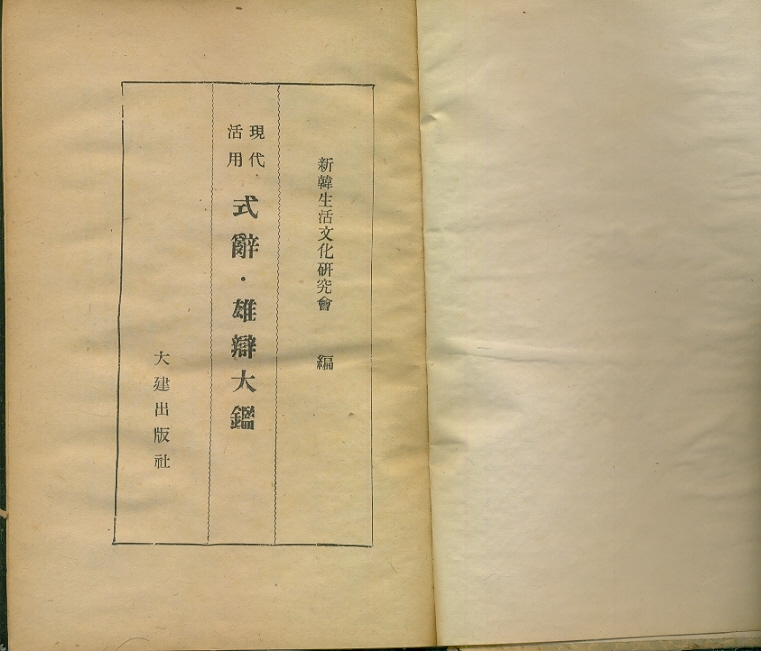 新韓生活文化硏究會 編
現代
活用
式辭・雄辯大鑑
大建出版社